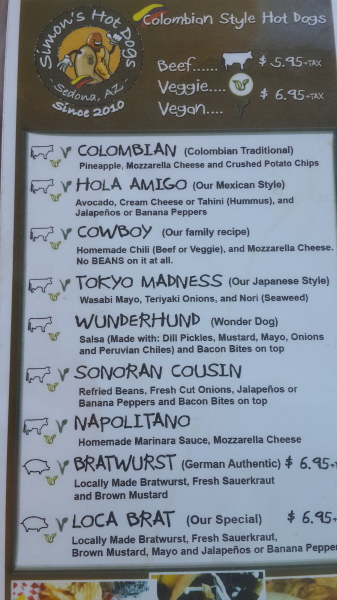 Simon's Hot Dogs
Sedona, AZ.
Since 2010
Colombian Style Hot Dogs
Beef...... $ 5.95+TAX
Veggie....
Vegan.... $ 6.95+TAX
COLOMBIAN (Colombian Traditional)
Pineapple, Mozzarella Cheese and Crushed Potato Chips
HOLA AMIGO (Our Mexican Style)
Avocado, Cream Cheese or Tahini (Hummus), and
Jalapeños or Banana Peppers
COWBOY (Our family recipe)
Homemade Chili (Beef or Veggie), and Mozzarella Cheese.
No BEANS on it at all.
TOKYO MADNESS (Our Japanese Style)
Wasabi Mayo, Teriyaki Onions, and Nori (Seaweed)
WUNDERHUND (Wonder Dog)
Salsa (Made with: Dill Pickles, Mustard, Mayo, Onions
and Peruvian Chiles) and Bacon Bites on top
SONORAN COUSIN
Refried Beans, Fresh Cut Onions, Jalapeños or
Banana Peppers and Bacon Bites on top
NAPOLITANO
Homemade Marinara Sauce, Mozzarella Cheese
BRATWURST (German Authentic) $ 6.95+
Locally Made Bratwurst, Fresh Sauerkraut
and Brown Mustard
LOCA BRAT (Our Special) $ 6.95+
Locally Made Bratwurst, Fresh Sauerkraut,
Brown Mustard, Mayo and Jalapeños or Banana Pepper